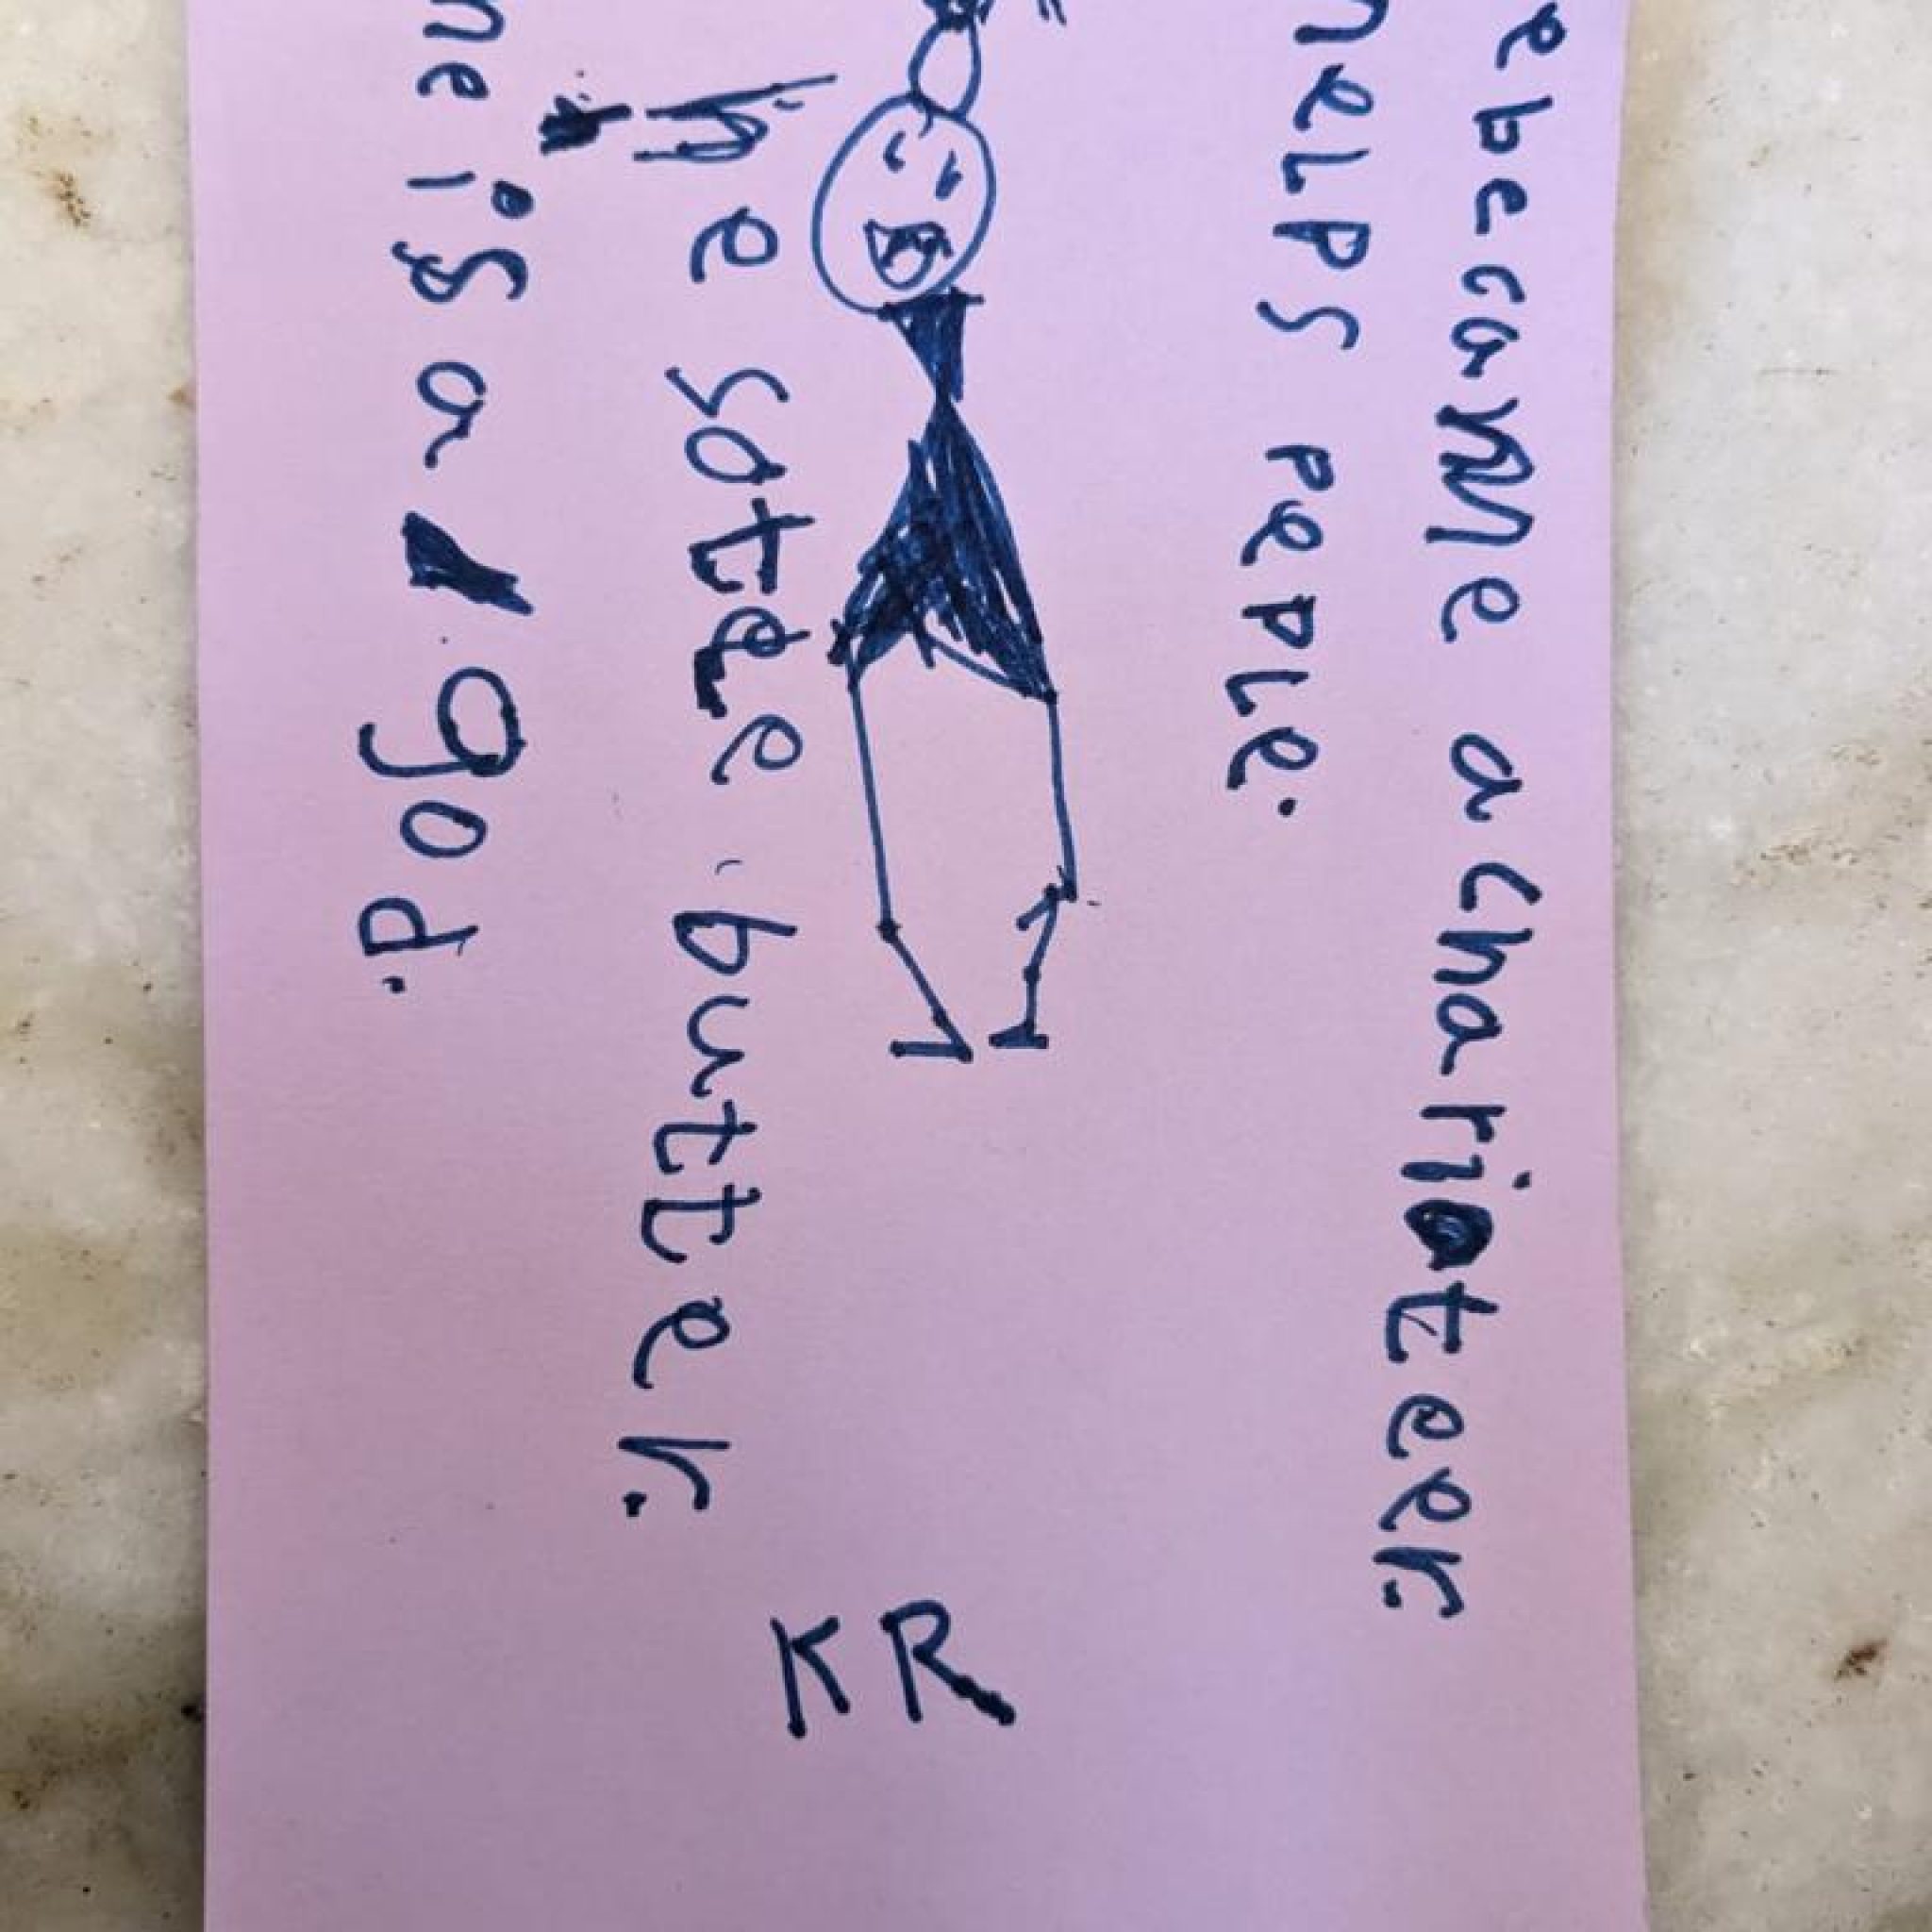 e became a charioteer.
helps peple.
KR
he butter.
he is a god.